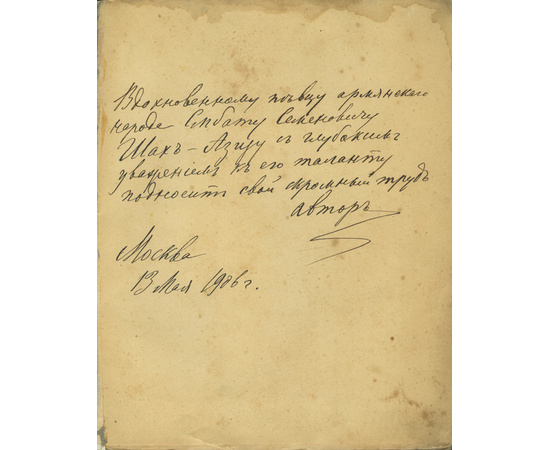 Вдохновенному пѣвцу армянскаго
народа Смбату Семеновичу
Шахъ-Азизу съ глубокимъ
уваженіемъ къ его таланту
подноситъ свой скромный трудъ
авторъ
Москва
13 Мая 1906 г.